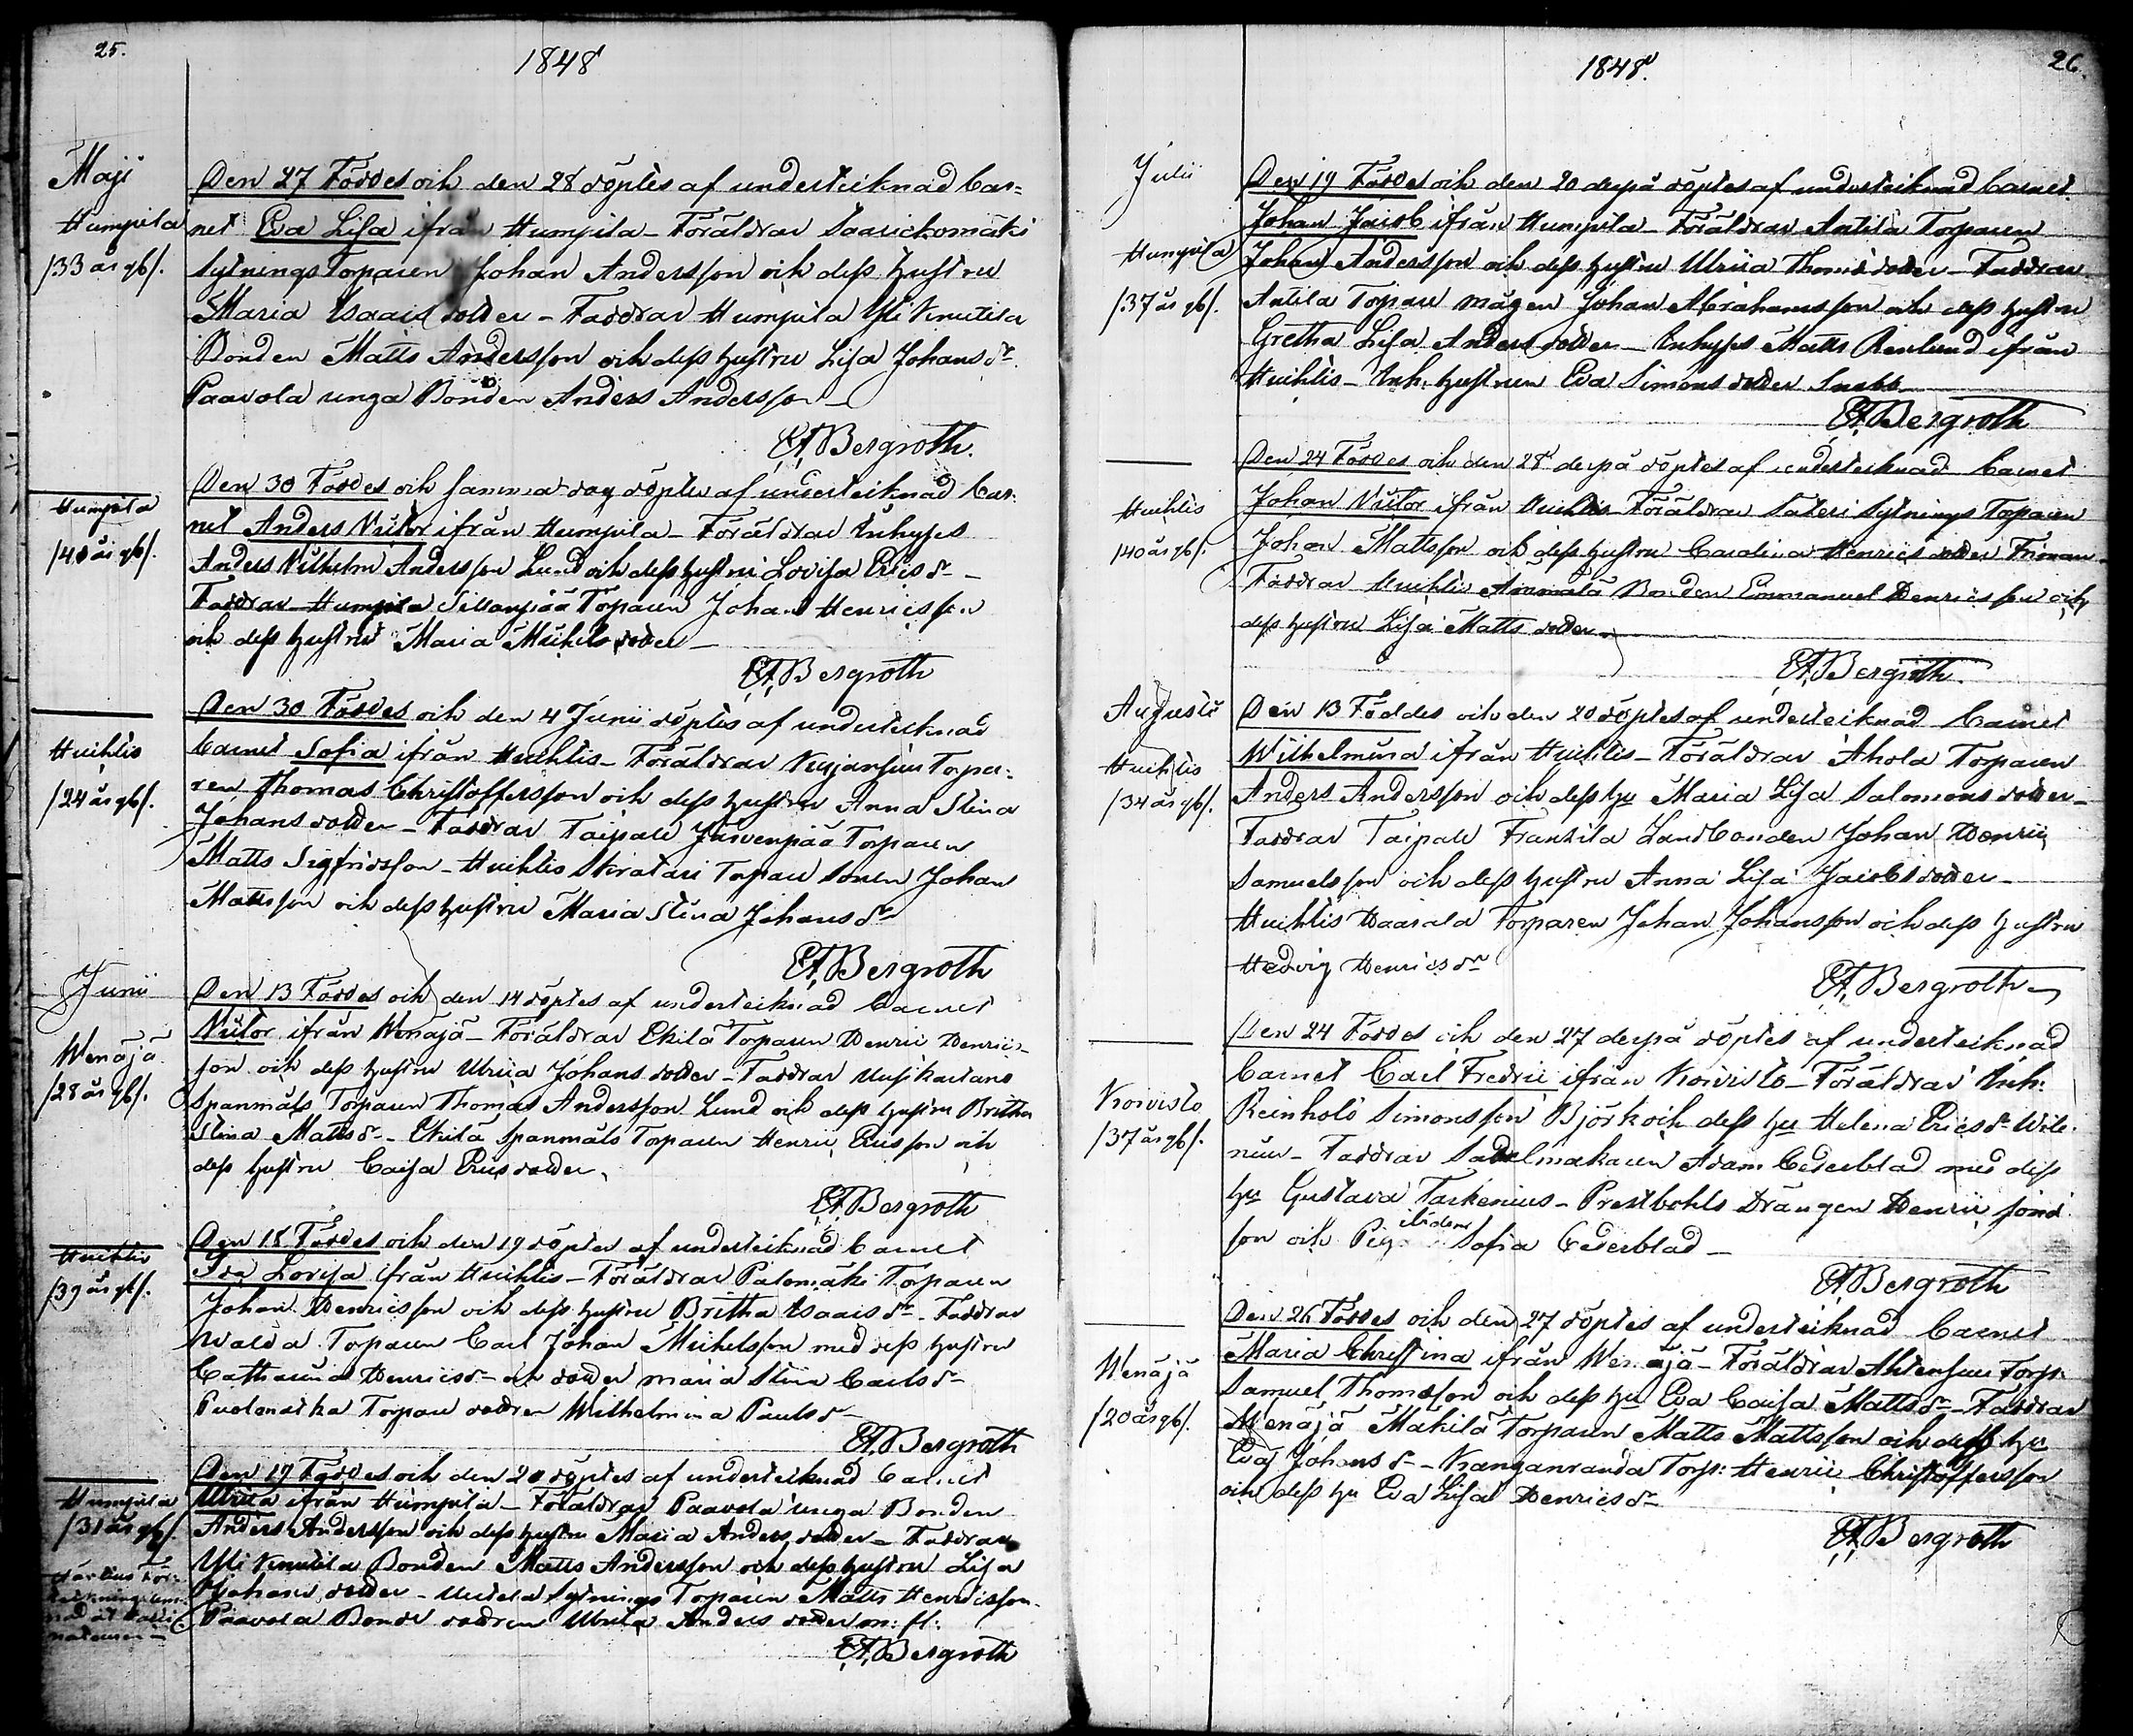 25.
1848
Maji
Humpila
/33 år gl/.
Den 27 Föddes och den 28 döptes af undertecknad bar=
net Eva Lisa ifrån Humpila – Föräldrar Saarickomäki
Sytnings Torparen Johan Andersson och dess hustru
Maria Isaacs dotter – Faddrar Humpila Yli Knutila
Bonden Matts Andersson och dess hustru Lisa Johans dr
Paavola unga Bonden Anders Andersson –
EA Bergroth.
Humpila
/40 år gl/.
Den 30 Föddes och samma dag döptes af undertecknad bar:
net Anders Victor ifrån Humpila – Föräldrar Inhyses
Anders Wilhelm Andersson Lund och dess hustru Lovisa Erics dr –
Faddrar Humpila Sillanpää Torparen Johan Henricsson
och dess hustru Maria Michels dotter –
EA Bergroth
Huihtis
/24 år gl/.
Den 30 Föddes och den 4 Junii döptes af undertecknad
barnet Sofia ifrån Huihtis – Föräldrar Torpa=
ren Thomas Christoffersson och dess hustru Anna Stina
Johans dotter – Faddrar Taipale Järvenpää Torparen
Matts Sigfridsson – Huihtis Skratari Torpare Sonen Johan
Mattsson och dess hustru Maria Stina Johans dr
EA Bergroth
Junii
Wenäjä
/28 år gl/.
Den 13 Föddes och den 14 döptes af undertecknad barnet
Victor ifrån Wenäjä – Föräldrar Ekilä Torparen Henric Henrics=
son och dess hustru Ulrica Johans dotter – Faddrar
Spanmåls Torparen Thomas Andersson Lund och dess hustru Britha
Stina Matts dr – Ekilä Spanmåls Torparen Henric Ericsson och
dess hustru Caisa Erics dotter,
EA Bergroth
Huihtis
/39 år gl/.
Den 18 Föddes och den 19 döptes af undertecknad barnet
Ida Lovisa ifrån Huihtis – Föräldrar Palomäki Torparen
Johan Henricsson och dess hustru Britha Isaacs dr – Faddrar
Torparen Carl Johan Michelsson med dess hustru
Catharina Henricsdr och dotter Maria Stina Carls dr
Puolmatka Torpare dottren Wilhelmina Pauls dr –
EA Bergroth
Humpila
/31 år gl/.
Den 19 Föddes och den 20 döptes af undertecknad barnet
Ulrica ifrån Humpila – Föräldrar Paavola unga Bonden
Anders Andersson och dess hustru Maria Anders dotter – Faddrar
Yli Knutila Bonden Matts Andersson och dess hustru Lisa
Johans dotter – Sytnings Torparen Matts Henricsson –
Paavola Bonde dottren Ulrica Anders dotter m: fl:
EA Bergroth
1848.
26.
Julii
Humpila
/37 år gl/.
Den 19 Föddes och den 20 derpå döptes af undertecknad barnet
Johan Jacob ifrån Humpila – Föräldrar Antila Torparen
Johan Andersson och dess hustru Ulrica Thomas dotter – Faddrar
Antila Torpare mågen Johan Abrahamsson och dess hustru
Gretha Lisa Anders dotter – Inhyses Matts Renlund ifrån
Huihtis – Inh. hustrun Eva Simons dotter Snabb
EA Bergroth
Huihtis
/40 år gl/.
Den 24 Föddes och den 28 derpå döptes af undertecknad barnet
Johan Victor ifrån Huihtis – Föräldrar Säteri Sytnings Torparen
Johan Mattsson och dess hustru Carolina Henrics dotter Friman –
Faddrar Huihtis Bonden Emmanuel Henricsson och
dess hustru Lisa Matts dotter –
EA Bergroth
Augusti
Huihtis
/34 år gl/.
Den 13 Föddes och den 20 döptes af undertecknad barnet
Wilhelmina ifrån Huihtis – Föräldrar Ahola Torparen
Anders Andersson och dess hu Maria Lisa Salomons dotter –
Faddrar Taipale Frantsila Landbonden Johan Henric
Samuelsson och dess hustru Anna Lisa Jacobs dotter –
Huihtis Torparen Johan Johansson och dess hustru
Hedvig Henrics dr
EA Bergroth
Koivisto
/37 år gl/.
Den 24 Föddes och den 27 derpå döptes af undertecknad
barnet Carl Fredric ifrån Koivisto – Föräldrar Inh:
Reinhold Simonsson Björk och dess hu Helena Erics dr
– Faddrar Sadelmakaren Adam Cederblad med dess
hu Gustava Tackenius – Prestbohls Drängen Henric
son och Pig Sofia Cederblad –
EA Bergroth
Wenäjä
/20 år gl/.
Den 26 Föddes och den 27 döptes af undertecknad barnet
Maria Christina ifrån Wenäjä – Föräldrar Torp:
Samuel Thomasson och dess hu Eva Caisa Matts dr – Faddrar
Wenäjä Mäkilä Torparen Matts Mattsson och dess hu
Eva Johans dr – Kanganranda Torp: Henric Christoffersson
och dess hu Eva Lisa Henrics dr
EA Bergroth